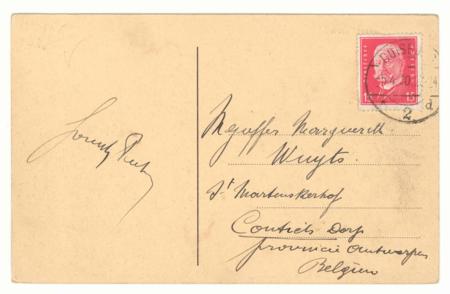 Mejuffer Marguerite
Wuyts.
St Martenskerhof
Contich Dorp
provincie Antwerpen
Belgien
15
2
d